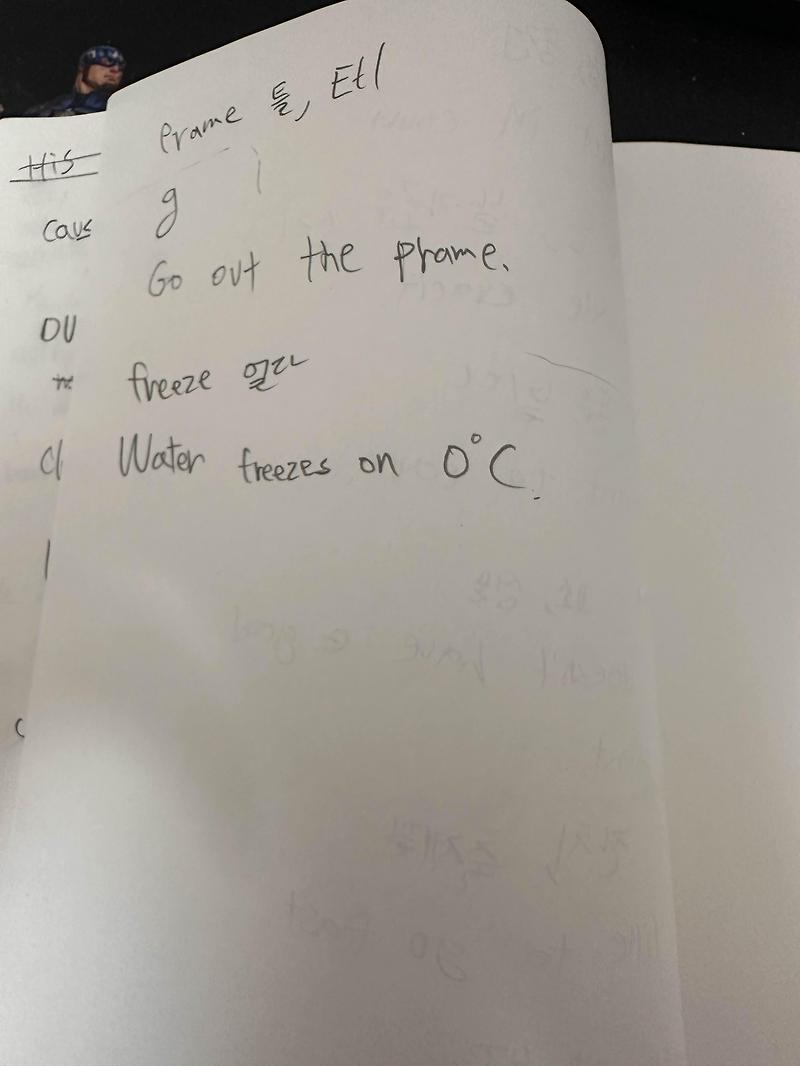 Prame 틀, 테
His
g
Caus
Go out the prame.
OU
freeze 얼다
Water freezes on 0°C.